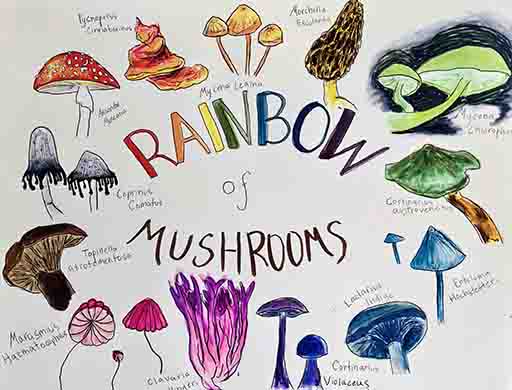 Pycnoporus
Cinnabarinus
Mycena Leaiana
Morchella
Esculenta
Amanita
Muscaria
RAINBOW
of
MUSHROOMS
Mycena
Chlorophos
Coprinus
Comatus
Cortinarius
austrovenetus
Tapinella
atrotomentosa
Lactarius
Indigo
Entoloma
Hochstetteri
Marasmius
Haematocephalus
Clavaria
Cortinarius
Violaceus